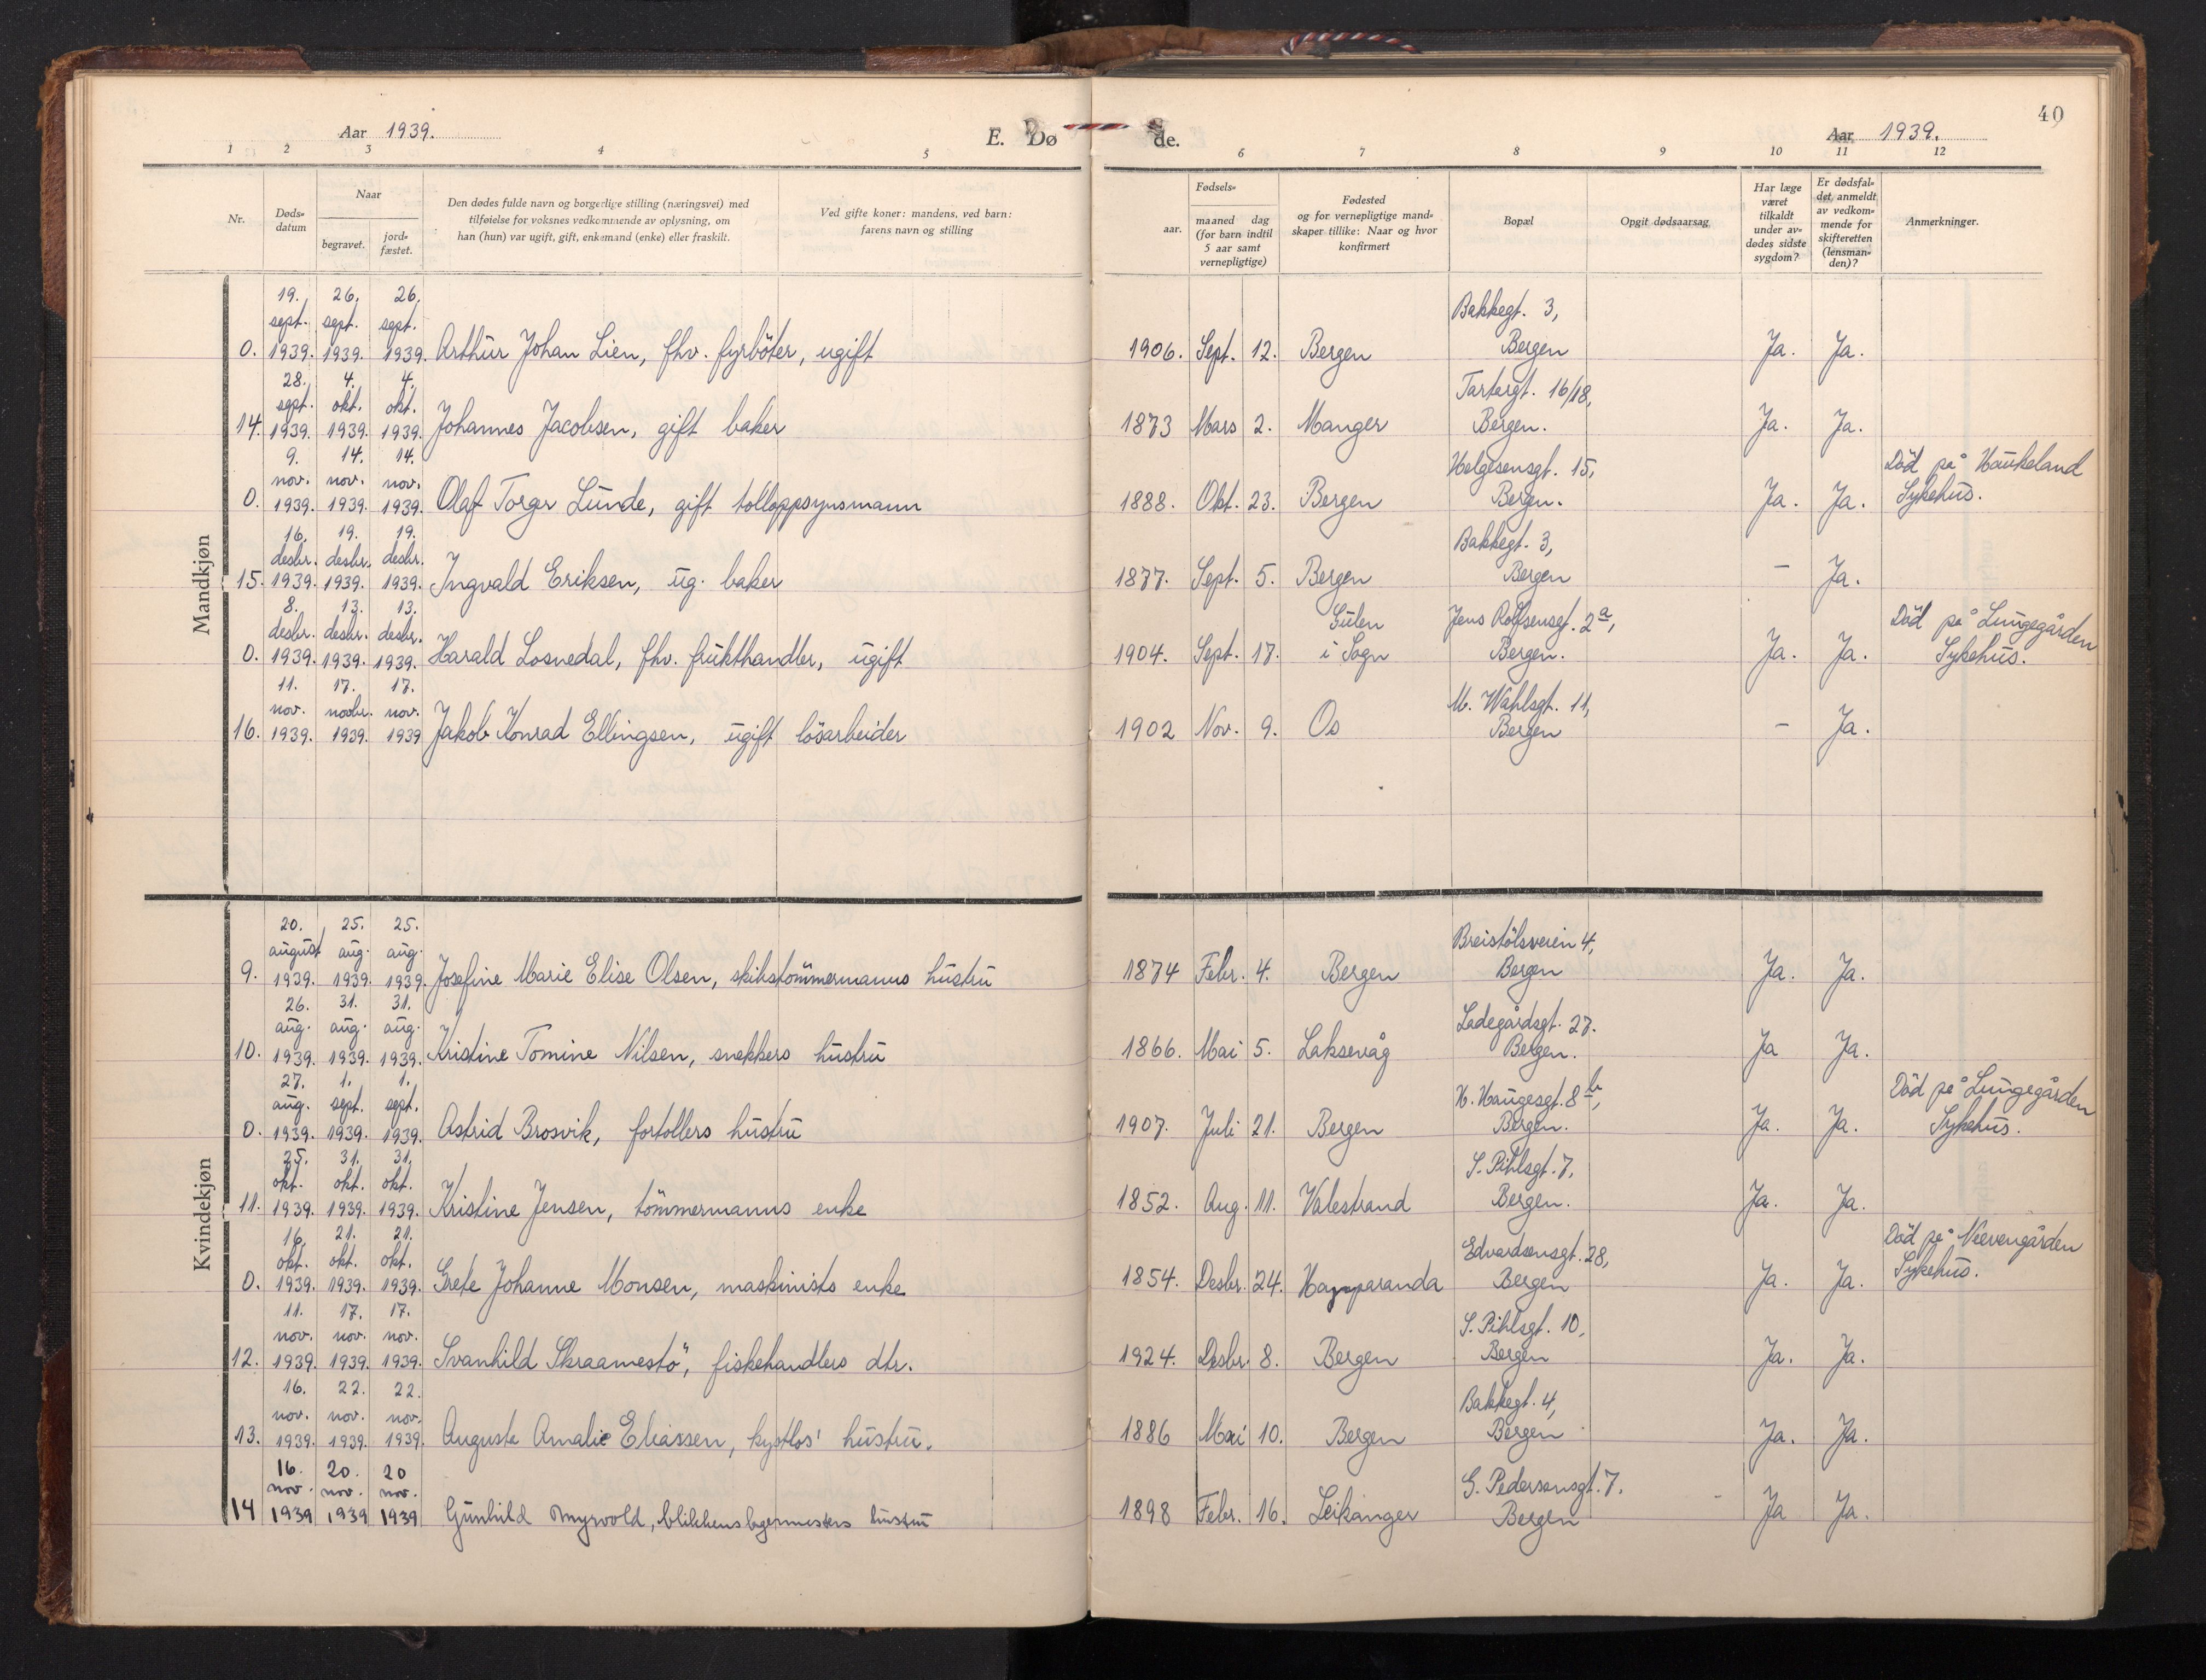 40
Aar 1939.
E. Dø de.
Aar 1939.
1 2 3 4 5 6 7 8 9 10 11 12
Nr.
Døds-
datum
Naar
begravet.
jord-
fæstet.
Den dødes fulde navn og borgerlige stilling (næringsvei) med
tilføielse for voksnes vedkommende av oplysning, om
han (hun) var ugift, gift, enkemand (enke) eller fraskilt.
Ved gifte koner: mandens, ved barn:
farens navn og stilling
Fødsels-
aar.
maaned dag
(for barn indtil
5 aar samt
vernepligtige)
Fødested
og for vernepligtige mand-
skaper tillike: Naar og hvor
konfirmert
Bopæl
Opgit dødsaarsag
Har læge
været
tilkaldt
under av-
dødes sidste
sygdom?
Er dødsfal-
det anmeldt
av vedkom-
mende for
skifteretten
(lensman-
den)?
Anmerkninger.
Mandkjøn
19. 26. 26. Bakkegt. 3,
sept. sept. sept.
0. 1939. 1939. 1939. Arthur Johan Lien, fhv. fyrböter, ugift 1906. Sept. 12. Bergen Bergen Ja. Ja.
28. 4. 4. Tartargt. 16/18,
sept. okt. okt.
14. 1939. 1939. 1939. Johannes Jacobsen, gift baker 1873 Mars 2. Manger Bergen. Ja. Ja.
9. 14. 14. Helgesensgt. 15, Död på Haukeland
nov. nov. nov.
0. 1939. 1939. 1939. Olaf Torger Lunde, gift tolloppsynsmann 1888. Okt. 23. Bergen Bergen. Ja. Ja. Sykehus.
16. 19. 19. Bakkegt. 3,
desbr. desbr. desbr.
15. 1939. 1939. 1939. Ingvald Eriksen, ug. baker 1877. Sept. 5. Bergen Bergen – Ja.
8. 13. 13. Gulen Jens Rolfsensgt. 2a, Död på Lungegården
desbr. desbr. desbr.
0. 1939. 1939. 1939. Harald Losnedal, fhv. frukthandler, ugift 1904. Sept. 17. i Sogn Bergen. Ja. Ja. Sykehus.
11. 17. 17. M. Wahlsgt. 11,
nov. novbr. nov.
16. 1939. 1939. 1939 Jakob Konrad Ellingsen, ugift lösarbeider 1902 Nov. 9. Os Bergen – Ja.
Kvindekjøn
20. 25. 25. Breistölsveien 4,
august aug. aug.
9. 1939. 1939. 1939. Josefine Marie Elise Olsen, skibstömmermanns hustru 1874 Febr. 4. Bergen Bergen Ja. Ja.
26. 31. 31. Ladegårdsgt. 27.
aug. aug. aug.
10. 1939. 1939. 1939. Kristine Tomine Nilsen, snekkers hustru 1866. Mai 5. Laksevåg Bergen. Ja Ja.
27. 1. 1. H. Haugesgt. 8b, Död på Lungegården
aug. sept. sept.
0. 1939. 1939. 1939. Astrid Brosvik, fortollers hustru 1907. Juli 21. Bergen Bergen. Ja. Ja. Sykehus.
25. 31. 31. S. Pihlsgt. 7,
okt. okt. okt.
11. 1939. 1939. 1939. Kristine Jensen, tömmermanns enke 1852. Aug. 11. Valestrand Bergen. Ja. Ja.
16. 21. 21. Edvardsensgt. 28, Död på Neevengården
okt. okt. okt.
0. 1939. 1939. 1939. Grete Johanne Monsen, maskinists enke 1854. Desbr. 24. Happaranda Bergen Ja. Ja. Sykehus.
11. 17. 17. S. Pihlsgt. 10,
nov. nov. nov.
12. 1939. 1939. 1939. Svanhild Skraamestö, fiskehandlers dtr. 1924. Desbr. 8. Bergen Bergen Ja. Ja.
16. 22. 22. Bakkegt. 4,
nov. nov. nov.
13. 1939. 1939. 1939. Auguste Amalie Eliassen, kystlos' hustru. 1886 Mai 10. Bergen Bergen Ja. Ja.
16. 20. 20 G. Pedersensgt. 7.
nov. nov. nov.
14 1939 1939 1939 Gunhild Myrvold, blikkenslagermesters hustru 1898 Febr. 16. Leikanger Bergen Ja Ja.